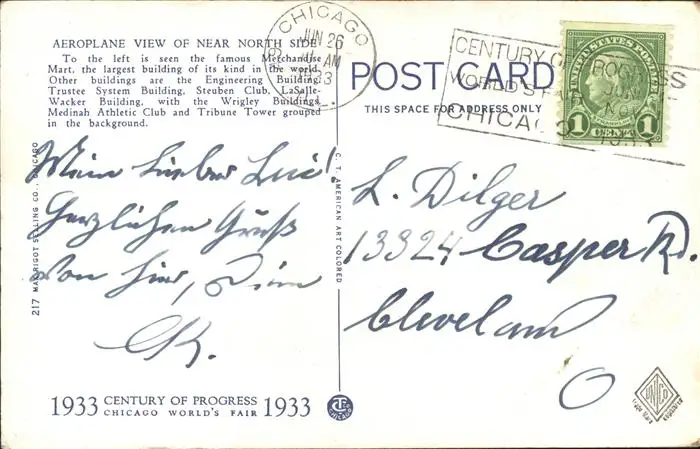 AEROPLANE VIEW OF NEAR NORTH SIDE
To the left is seen the famous Merchandise
Mart, the largest building of its kind in the world.
Other buildings are the Engineering Building,
Trustee System Building, Steuben Club, LaSalle-
Wacker Building, with the Wrigley Buildings,
Medinah Athletic Club and Tribune Tower grouped
in the background.
CHICAGO
JUN 26
AM
33
ILL.
CENTURY OF PROGRESS
WORLD'S FAIR
CHICAGO
1933
UNITED STATES POSTAGE
1 CENT 1
POST CARD
THIS SPACE FOR ADDRESS ONLY
Mein lieber
Herzlichen Gruß
von hier, Dein
L. Dilger
13924 Casper Rd.
Cleveland
O
217 SELLING CO., CHICAGO
C. T. AMERICAN ART COLORED
1933 CENTURY OF PROGRESS 1933
CHICAGO WORLD'S FAIR
CHICAGO
UNICO
TRADE MARK
REGISTERED